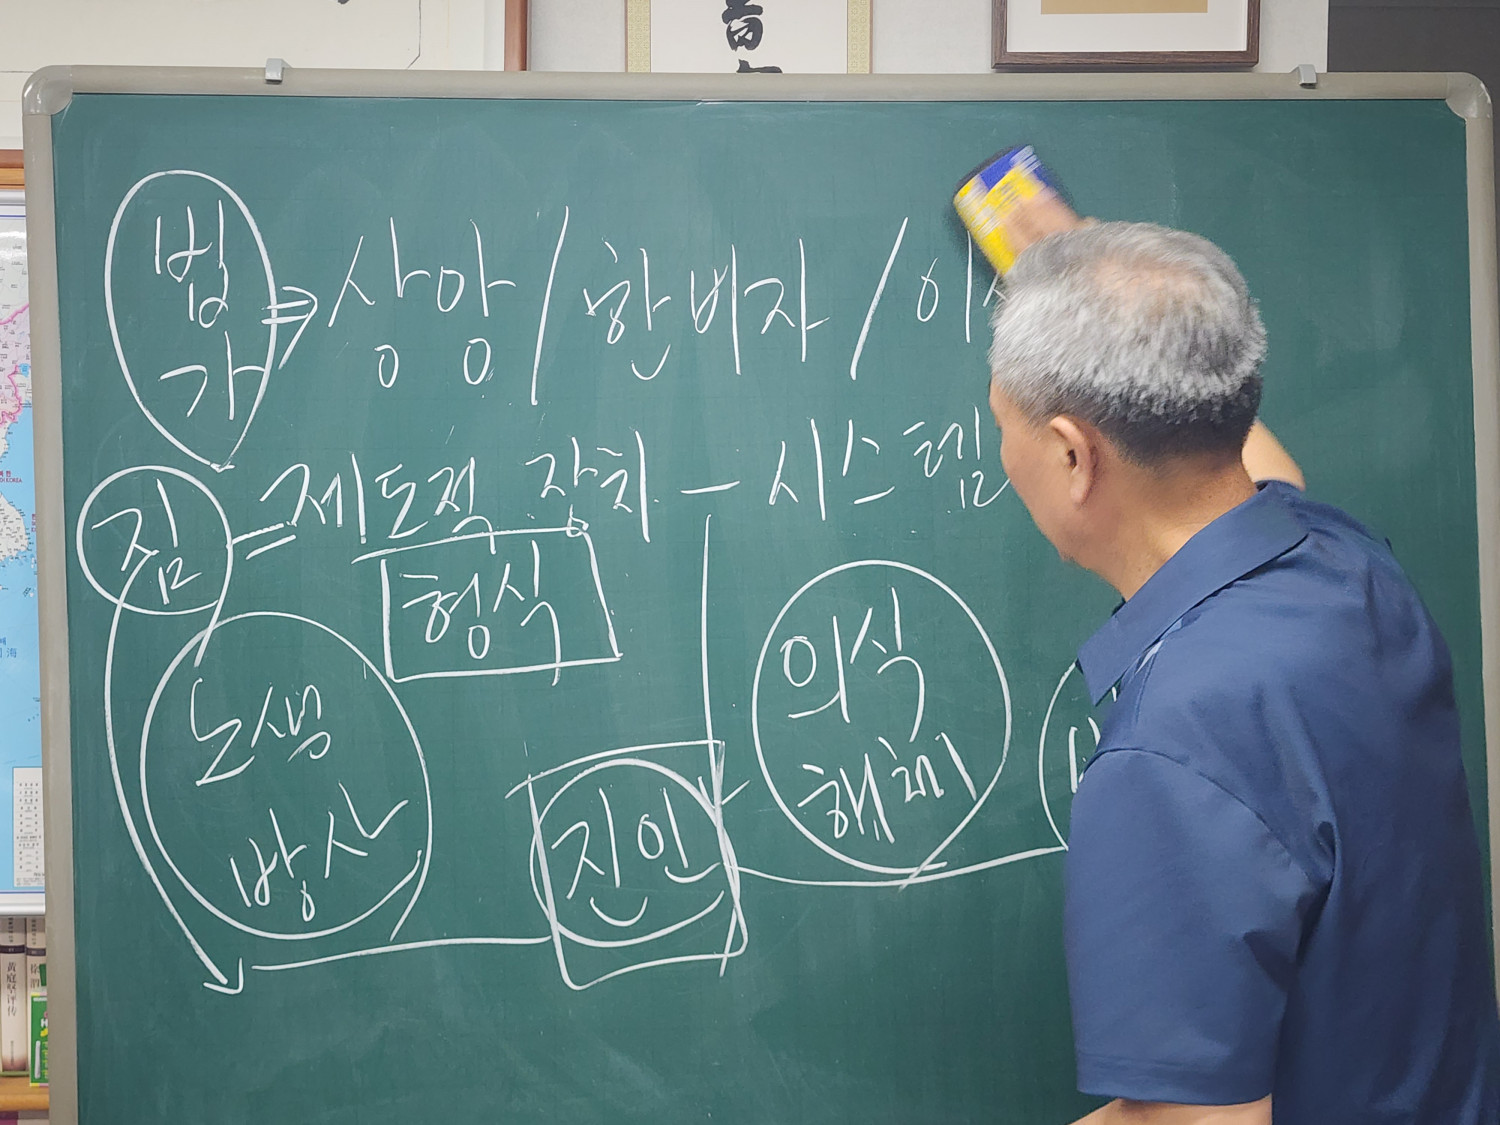 법가 ⇒ 상앙 / 한비자 / 이
짐 = 제도적 장치 — 시스템
형식
노생
방사
진인
의식
해체